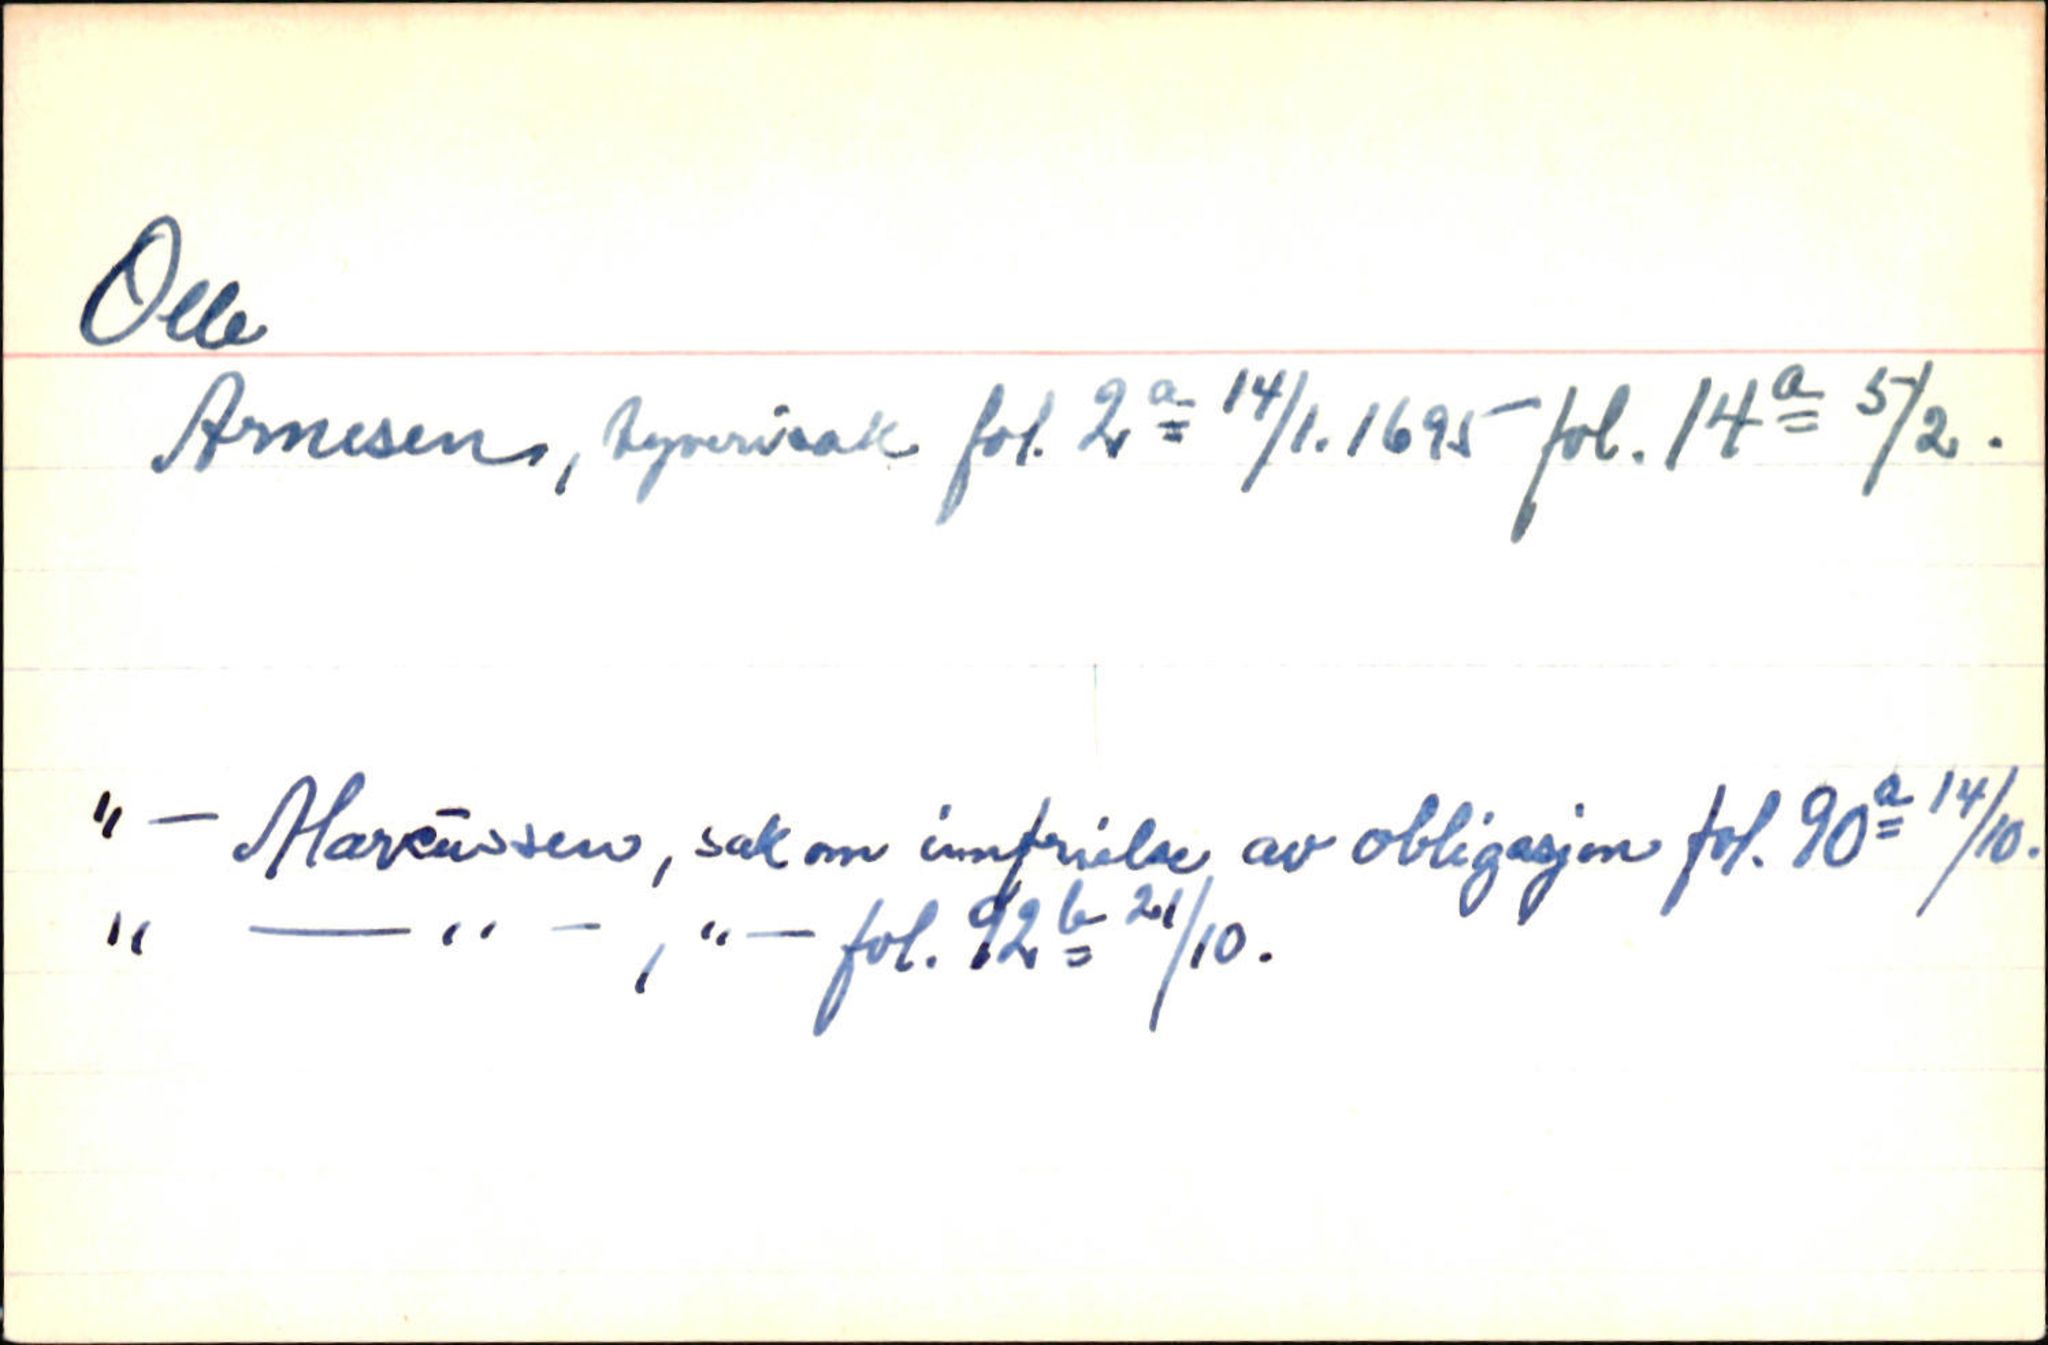 Olle
Arnesen, tyverisak fol. 2a 14/1. 1695 fol. 14a 5/2.
" — Markussen, sak om innfrielse av obligasjon fol. 90a 14/10.
" — " — , " — fol. 92b 21/10.